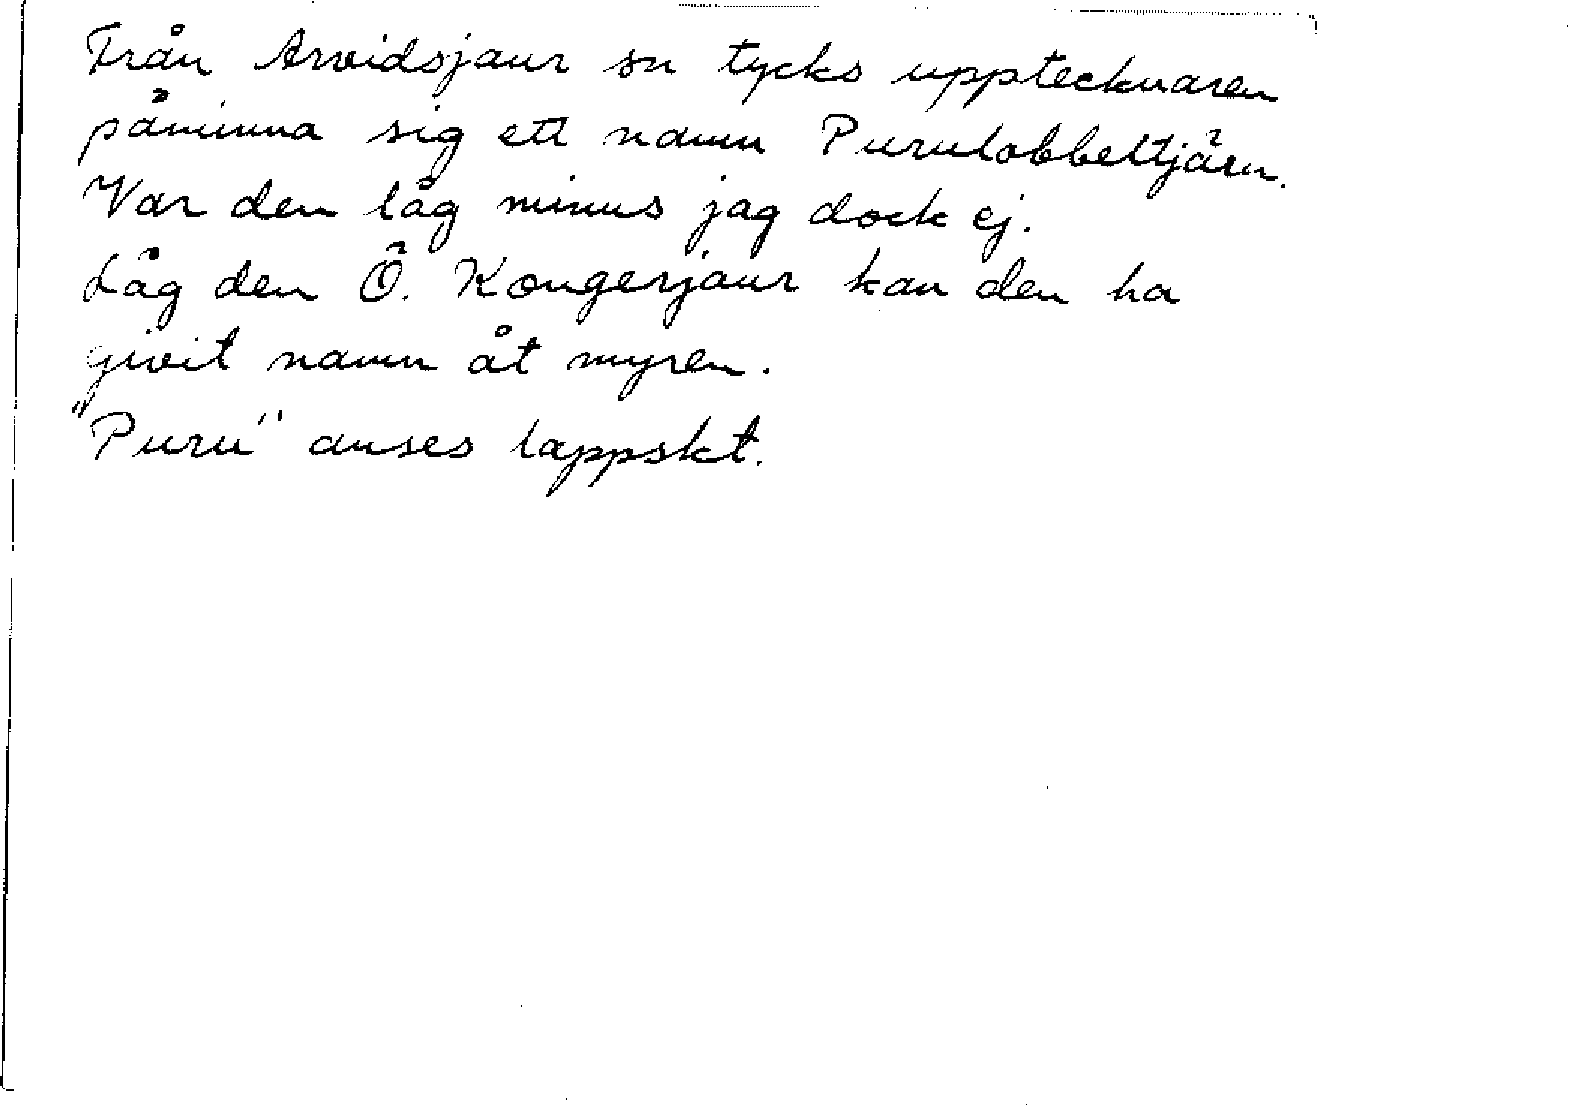 Från Arvidsjaur sn tycks upptecknaren
påminna sig ett namn Purulobbeltjärn.
Var den låg minns jag dock ej.
Låg den Ö. Kongerjaur kan den ha
givit namn åt myren.
"Puru" anses lappskt.